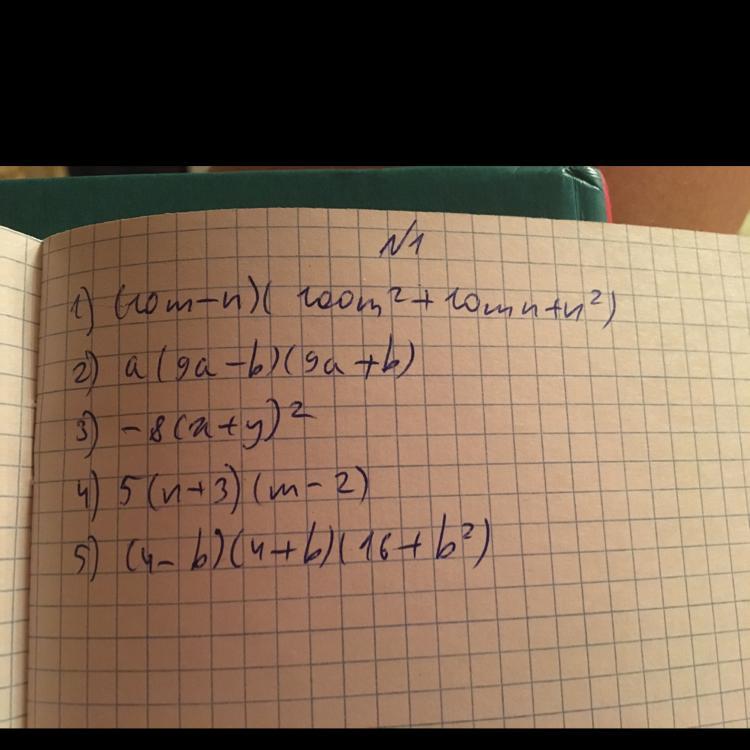 №1
1) (10m-n)(100m²+10mn+n²)
2) a(9a-b)(9a+b)
3) -8(x+y)²
4) 5(n+3)(m-2)
5) (4-b)(4+b)(16+b²)